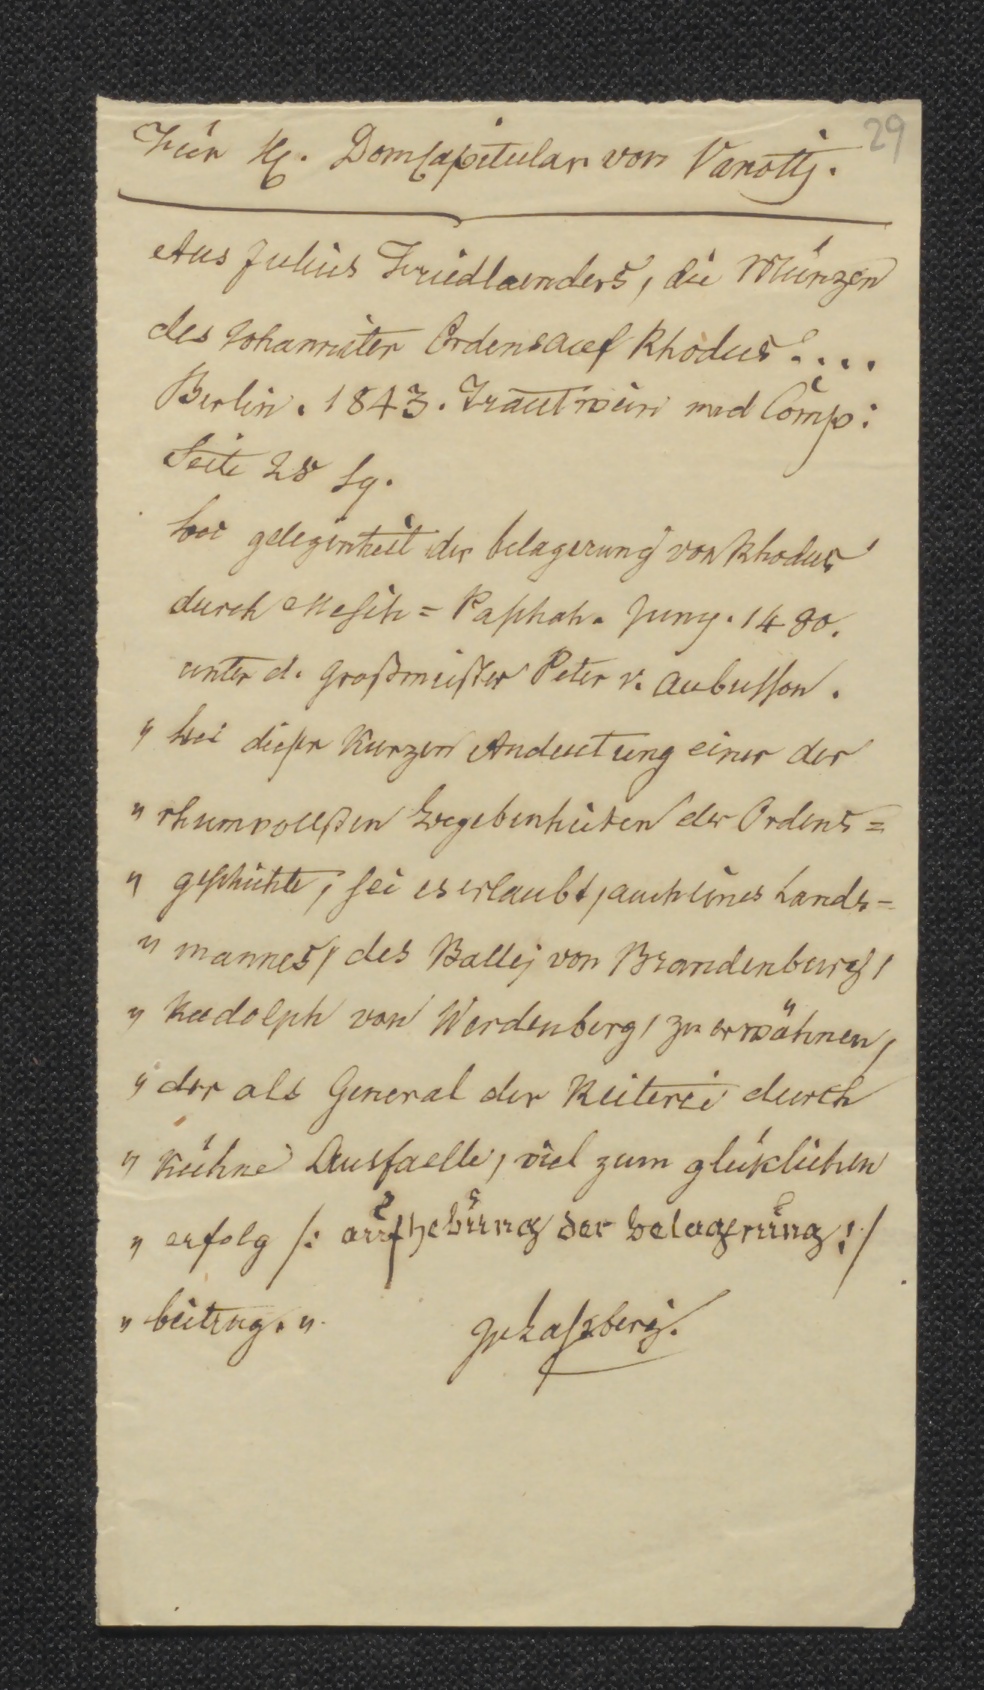 29
Für H. Domcapitular von Vanottj.
Aus Julius Friedlaenders, die Münzen
des Johanniter Ordens auf Rhodus....
Berlin. 1843. Trautwein und Comp:
Seite 28 sq.
bei gelegenheit der belagerung von Rhodus
durch Mesih=Paschah. Juny. 1480.
unter d. Großmeister Peter v. Aubusson.
„ bei dieser Kurzen Andeutung einer der
„ rhumvollsten Begebenheiten der Ordens=
„ geschichte, sei es erlaubt, auch eines Lands-
„ mannes, des Ballej von Brandenburg,
„ Rudolph von Werdenberg, zu erwähnen,
„ der als General der Reiterei durch
„ Kühne Ausfaelle, viel zum glüklichen
„ erfolg /: aufhebung der belagrung :/
„ beitrug. „
JvLaszberg.